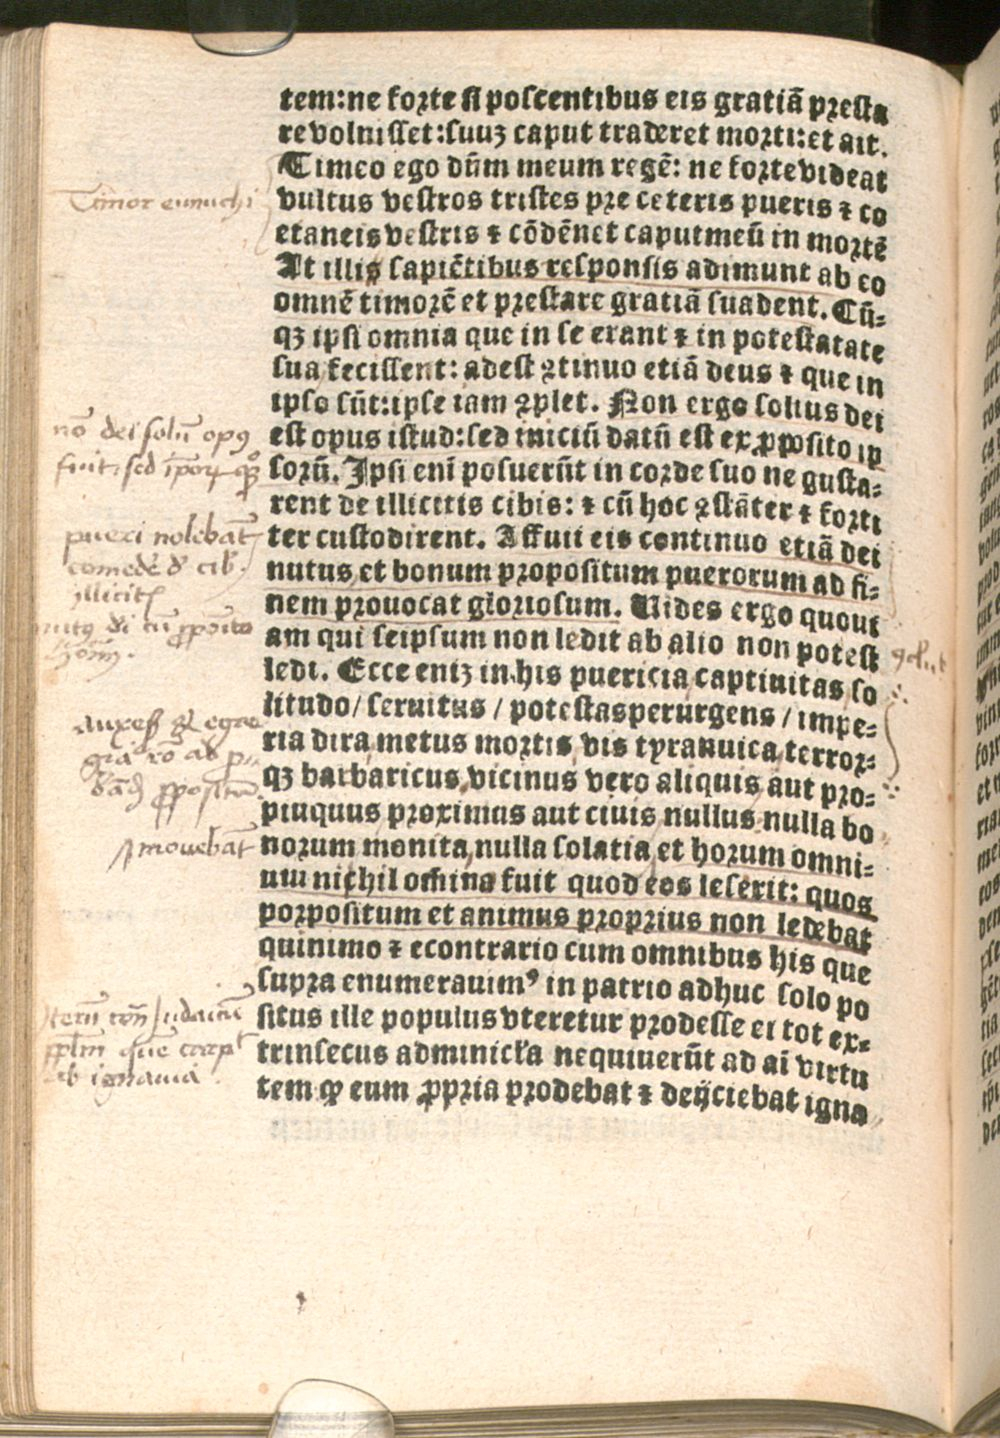 tem:ne forte si poscentibus eis gratiā presta
re voluisset:suuʒ caput traderet morti:et ait.
Timeo ego dūm meum regē: ne forte videat
vultus vestros tristes pre ceteris pueris ⁊ co
etaneis vestris ⁊ cōdēnet caput meū in mortē
At illis sapiētibus responsis adimunt ab eo
omnē timorē et prestare gratiā suadent. Cū-
qʒ ipsi omnia que in se erant ⁊ in potestate
sua fecissent: adest ꝯtinuo etiā deus ⁊ que in
ipso sūt:ipse iam ꝯplet. Non ergo solius dei
est opus istud:sed iniciū datū est ex ꝓposito ip
sorū. Ipsi eni posuerūt in corde suo ne gusta-
rent de illicitis cibis: ⁊ cū hoc ꝯstāter ⁊ forti
ter custodirent. Affuit eis continuo etiā dei
nutus et bonum propositum puerorum ad fi-
nem prouocat gloriosum. Uides ergo quoni
am qui seipsum non ledit ab alio non potest
ledi. Ecce eniʒ in his puericia captiuitas so
litudo/ seruitus / potestas perurgens / impe-
ria dira metus mortis vis tyrannica terror-
qʒ barbaricus vicinus vero aliquis aut pro-
pinquus proximus aut ciuis nullus nulla bo
norum monita nulla solatia et horum omni-
um nichil omnino fuit quod eos leserit: quos
porpositum et animus proprius non ledebat
quinimo ⁊ econtrario cum omnibus his que
supra enumerauimꝰ in patrio adhuc solo po
situs ille populus vteretur prodesse ei tot ex-
trinsecus adminicła nequiuerūt ad ai virtu
tem ꝙ eum ꝓpria prodebat ⁊ deijciebat igna
Timor eunuchi
nō dei solū opꝰ
fuit, sed
pueri nolebāt
comedē d cib.
illicit
ab ignauia